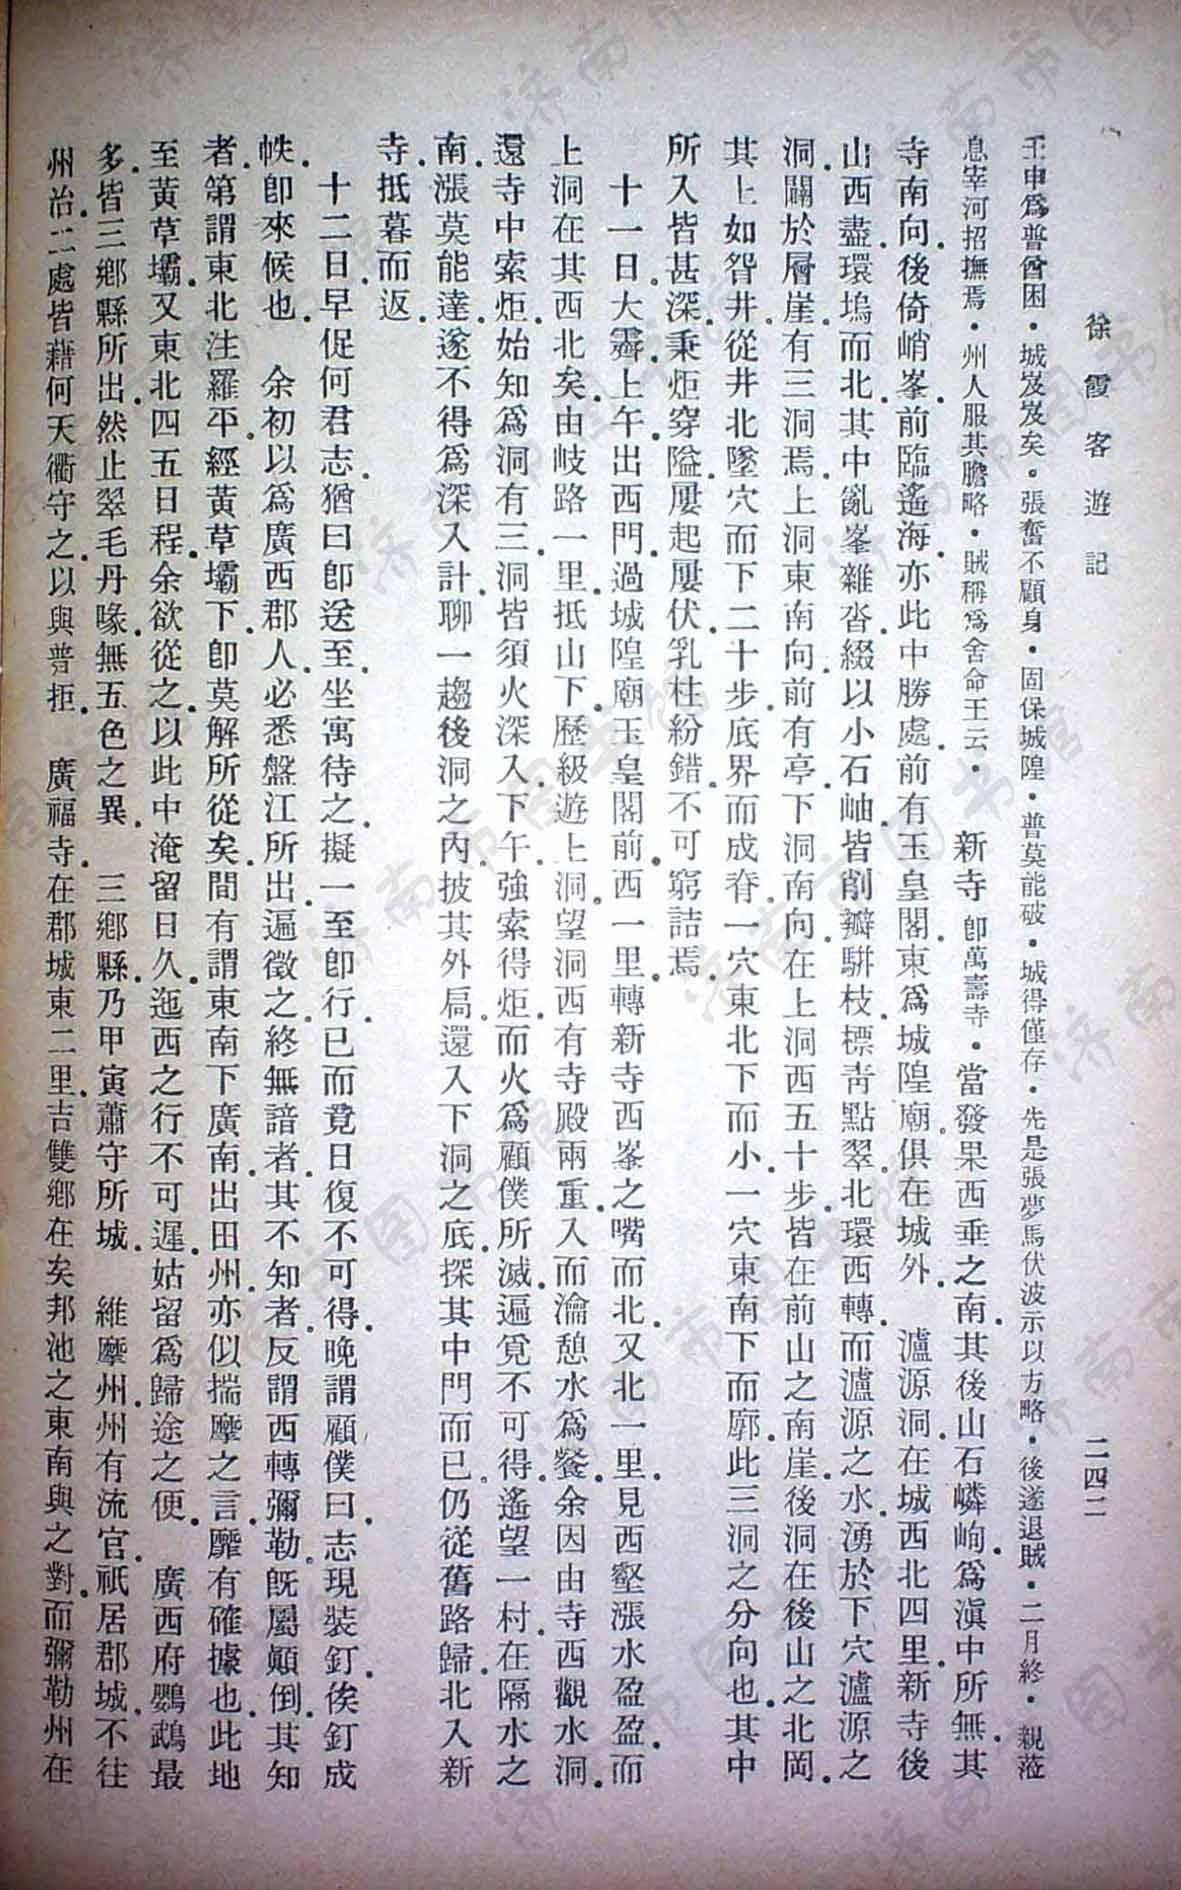 徐霞客遊記
二四二
壬申爲普酋困．城岌岌矣．張奮不顧身．固保城隍．普莫能破．城得僅存．先是張夢馬伏波示以方略．後遂退賊．二月終．親蒞
息宰河招撫焉．州人服其膽略．賊稱爲舍命王云．　新寺卽萬壽寺．當發果西垂之南．其後山石嶙峋．爲滇中所無．其
寺南向．後倚峭峯．前臨遙海．亦此中勝處．前有玉皇閣．東爲城隍廟．俱在城外．　瀘源洞在城西北四里．新寺後
山西盡．環塢而北．其中亂峯雜沓．綴以小石岫．皆削瓣駢枝．標靑點翠．北環西轉．而瀘源之水．湧於下穴．瀘源之
洞．闢於層崖．有三洞焉．上洞東南向．前有亭．下洞南向．在上洞西五十步．皆在前山之南崖．後洞在後山之北岡．
其上如眢井．從井北墜穴而下二十步．底界而成脊．一穴東北下而小．一穴東南下而廓．此三洞之分向也．其中
所入皆甚深．秉炬穿隘．屢起屢伏．乳柱紛錯．不可窮詰焉．
十一日．大霽．上午出西門．過城隍廟玉皇閣前．西一里．轉新寺西峯之嘴而北．又北一里．見西壑漲水盈盈．而
上洞在其西北矣．由岐路一里抵山下．歷級遊上洞．望洞西有寺殿兩重．入而瀹憩水爲餐．余因由寺西觀水洞．
還寺中索炬．始知爲洞有三．洞皆須火深入．下午．強索得炬．而火爲顧僕所滅．遍覓不可得．遙望一村．在隔水之
南．漲莫能達．遂不得爲深入計．聊一趨後洞之內．披其外扃．還入下洞之底．探其中門而已．仍從舊路歸．北入新
寺．抵暮而返．
十二日．早促何君志．猶曰卽送至．坐寓待之．擬一至卽行．已而竟日復不可得．晚謂顧僕曰．志現裝釘．俟釘成
帙．卽來候也．　余初以爲廣西郡人．必悉盤江所出．遍徵之．終無諳者．其不知者．反謂西轉彌勒．旣屬顚倒．其知
者．第謂東北注羅平．經黃草壩下．卽莫解所從矣．間有謂東南下廣南．出田州．亦似揣摩之言．靡有確據也．此地
至黃草壩．又東北四五日程．余欲從之．以此中淹留日久．迤西之行不可遲．姑留爲歸途之便．　廣西府鸚鵡最
多．皆三鄉縣所出．然止翠毛丹喙．無五色之異．　三鄉縣．乃甲寅蕭守所城．　維摩州．州有流官．祇居郡城．不往
州治．二處皆藉何天衢守之．以與普拒．　廣福寺．在郡城東二里．吉雙鄉在矣邦池之東南．與之對．而彌勒州在